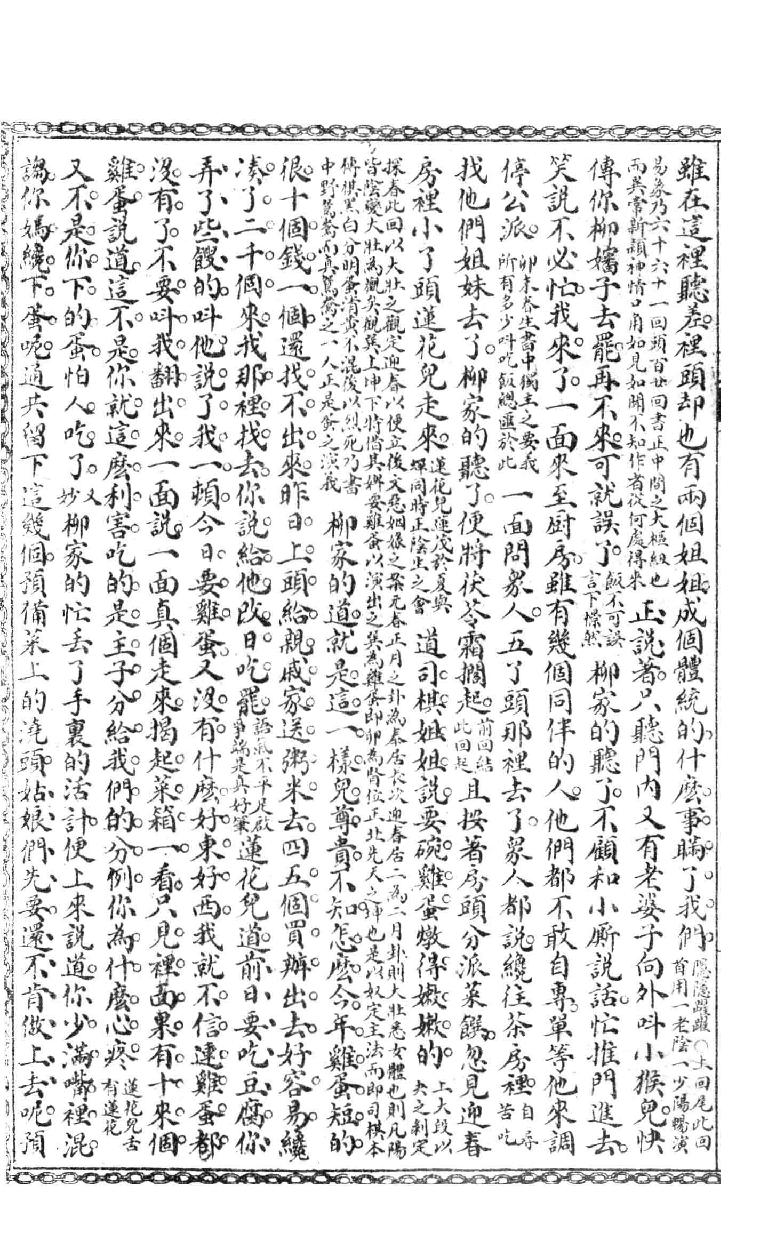 雖在這裡聽差裡頭却也有兩個姐姐成個體統的什麽事瞞了我們 隱隱躍躍○上回尾此回首用一老陰一少陽暢演
易象乃六十六十一回頭百廿回書正中間之大樞紐也而異常新穎神情口角如見如聞不知作者從何處得來 正說著只聽門內又有老婆子向外叫小猴兒快
傳你柳嬸子去罷再不來可就誤了 飯不可誤言下慄然 柳家的聽了不顧和小廝說話忙推門進去
笑說不必忙我來了一面來至厨房雖有幾個同伴的人他們都不敢自專單等他來調
停公派 卯木春生書中獨主之要我所有多少叫吃飯總匯於此 一面問衆人五丫頭那裡去了衆人都說纔往茶房裡 自尋苦吃
找他們姐妹去了柳家的聽了便將茯苓霜擱起 前回結此回起 且按著房頭分派菜饌忽見迎春
房裡小丫頭蓮花兒走來 蓮花兒蓮茂於夏與蟬同時正陰生之會 道司棋姐姐說要碗雞蛋燉得嫩嫩的 上大段以夬之剝定
探春此回以大壯之觀定迎春以便立後文惡姻娘之案元春正月之卦為泰居長次迎春居二為二月卦則大壯悉女體也則凡陽
皆陰變大壯為觀矣觀巽上坤下特借其婢要雞蛋以演出之巽為雞蛋即卵為腎位正北先天之坤也是以奴定主法而即司棋本
傳棋黑白分明蛋清黃不混後以烈死乃書中野鴛鴦而真鴛鴦之一人正是貪之演義 柳家的道就是這一樣兒尊貴不知怎麽今年雞蛋短的
很十個錢一個還找不出來昨日上頭給親戚家送粥米去四五個買辦出去好容易纔
凑了二千個來我那裡找去你說給他改日吃罷 語氣不平足啟爭端是真好筆 蓮花兒道前日要吃豆腐你
弄了些餿的叫他說了我一頓今日要雞蛋又沒有什麽好東西我就不信連雞蛋都
沒有了不要叫我翻出來一面說一面真個走來揭起菜箱一看只見裡面果有十來個
雞蛋說道這不是你就這麽利害吃的是主子分給我們的分例你為什麽心疼 蓮花兒舌有蓮花
又不是你下的蛋怕人吃了 又妙 柳家的忙丢了手裏的活計便上來說道你少滿嘴裡混
謅你媽纔下蛋呢通共留下這幾個預備菜上的澆頭姑娘們先要還不肯做上去呢預